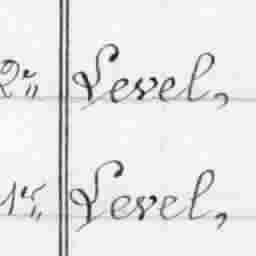 2" Level,
15" Level,